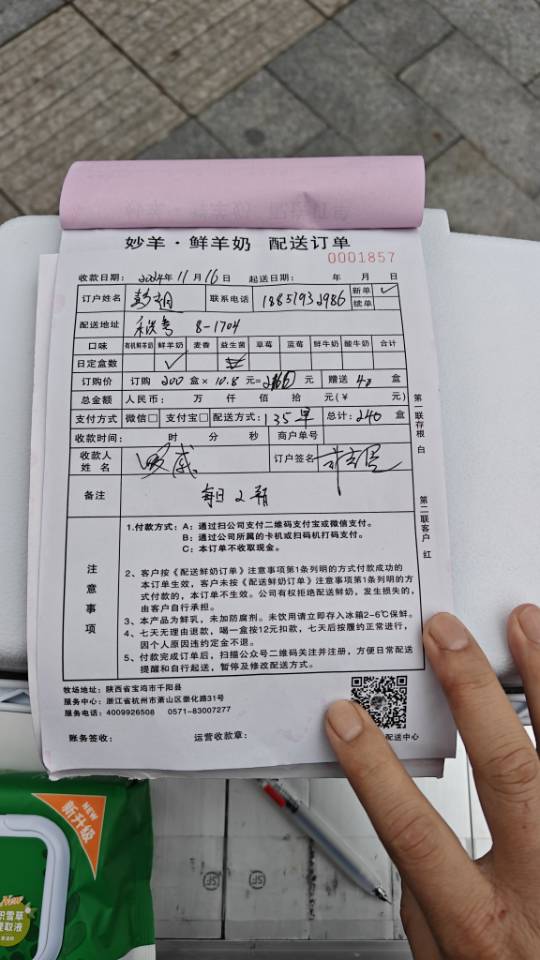 妙羊·鲜羊奶 配送订单
0001857
收款日期：2024年11月16日 起送日期： 年 月 日
订户姓名 联系电话 18851932986 新单 ✓
续单
配送地址 8-1704
口味 有机鲜羊奶 鲜羊奶 麦香 益生菌 草莓 蓝莓 鲜牛奶 酸牛奶 合计
日定盒数 ✓
订购价 订购 200 盒×10.8 元=2160 元 赠送 40 盒
总金额 人民币： 万 仟 佰 拾 元(￥ 元)
支付方式 微信□ 支付宝□ 配送方式：135早 总计：240 盒
收款时间： 时 分 秒 商户单号
收款人姓名 订户签名
备注 每日2瓶
注意事项
1.付款方式：A：通过扫公司支付二维码支付宝或微信支付。
B：通过公司所属的卡机或扫码机打码支付。
C：本订单不收取现金。
2、客户按《配送鲜奶订单》注意事项第1条列明的方式付款成功的
本订单生效，客户未按《配送鲜奶订单》注意事项第1条列明的方
式付款的，本订单不生效。公司有权拒绝配送鲜奶，发生损失的，
由客户自行承担。
3、本产品为鲜乳，未加防腐剂。未饮用请立即存入冰箱2-6℃保鲜。
4、七天无理由退款，喝一盒按12元扣款，七天后按履约正常进行，
因个人原因违约定金不退。
5、付款完成订单后，扫描公众号二维码关注并注册，方便日常配送
提醒和自行起送，暂停及修改配送方式。
第一联存根 白
第二联客户 红
牧场地址：陕西省宝鸡市千阳县
服务中心：浙江省杭州市萧山区崇化路31号
服务电话：4009926508 0571-83007277
账务签收： 运营收款章： 配送中心
NEW
新升级
New
积雪草
提取液